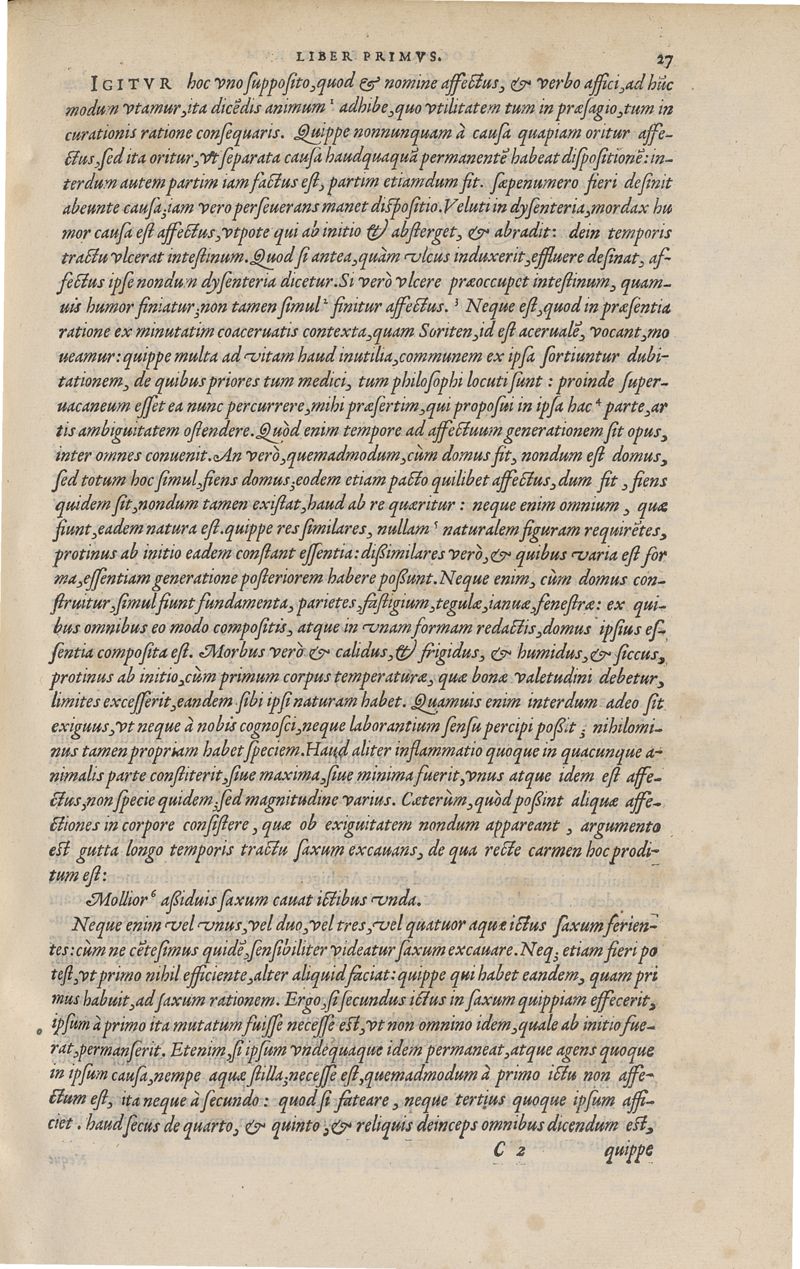 LIBER PRIMVS. 27
IGITVR hoc vno supposito, quod & nomine affectus, & verbo affici, ad hũc
modum vtamur, ita dicẽdis animum ¹ adhibe, quo vtilitatem tum in præsagio, tum in
curationis ratione consequaris. Quippe nonnunquam à causa quapiam oritur affe-
ctus, sed ita oritur, vt separata causa haudquaquã permanentẽ habeat dispositionẽ: in-
terdum autem partim iam factus est, partim etiamdum fit. sæpenumero fieri desinit
abeunte causa, iam vero perseuerans manet dispositio. Veluti in dysenteria, mordax hu
mor causa est affectus, vtpote qui ab initio & absterget, & abradit: dein temporis
tractu vlcerat intestinum. Quod si antea, quàm vlcus induxerit, effluere desinat, af-
fectus ipse nondum dysenteria dicetur. Si verò vlcere præoccupet intestinum, quam-
uis humor finiatur, non tamen simul ² finitur affectus. ³ Neque est, quod in præsentia
ratione ex minutatim coaceruatis contexta, quam Soriten, id est aceruale, vocant, mo
ueamur: quippe multa ad vitam haud inutilia, communem ex ipsa sortiuntur dubi-
tationem, de quibus priores tum medici, tum philosophi locuti sunt: proinde super-
uacaneum esset ea nunc percurrere, mihi præsertim, qui proposui in ipsa hac ⁴ parte, ar
tis ambiguitatem ostendere. Quòd enim tempore ad affectuum generationem sit opus,
inter omnes conuenit. An verò, quemadmodum, cùm domus fit, nondum est domus,
sed totum hoc simul, fiens domus, eodem etiam pacto quilibet affectus, dum fit, fiens
quidem sit, nondum tamen existat, haud ab re quæritur: neque enim omnium, quæ
fiunt, eadem natura est. quippe res similares, nullam ⁵ naturalem figuram requirẽtes,
protinus ab initio eadem constant essentia: dißimilares verò, & quibus varia est for
ma, essentiam generatione posteriorem habere poßunt. Neque enim, cùm domus con-
struitur, simul fiunt fundamenta, parietes, fastigium, tegulæ, ianuæ, fenestræ: ex qui-
bus omnibus eo modo compositis, atque in vnam formam redactis, domus ipsius es-
sentia composita est. Morbus verò & calidus, & frigidus, & humidus, & siccus,
protinus ab initio, cùm primum corpus temperaturæ, quæ bonæ valetudini debetur,
limites excesserit, eandem sibi ipsi naturam habet. Quamuis enim interdum adeo sit
exiguus, vt neque à nobis cognosci, neque laborantium sensu percipi poßit; nihilomi-
nus tamen propriam habet speciem. Haud aliter inflammatio quoque in quacunque a-
nimalis parte constiterit, siue maxima, siue minima fuerit, vnus atque idem est affe-
ctus, non specie quidem, sed magnitudine varius. Cæterùm, quòd poßint aliquæ affe-
ctiones in corpore consistere, quæ ob exiguitatem nondum appareant, argumento
est gutta longo temporis tractu saxum excauans, de qua recte carmen hoc prodi-
tum est:
Mollior ⁶ aßiduis saxum cauat ictibus vnda.
Neque enim vel vnus, vel duo, vel tres, vel quatuor aquæ ictus saxum ferien-
tes: cùm ne cẽtesimus quidẽ, sensibiliter videatur saxum excauare. Neq; etiam fieri po
test, vt primo nihil efficiente, alter aliquid faciat: quippe qui habet eandem, quam pri
mus habuit, ad saxum rationem. Ergo, si secundus ictus in saxum quippiam effecerit,
ipsum à primo ita mutatum fuisse necesse est, vt non omnino idem, quale ab initio fue-
rat, permanserit. Etenim, si ipsum vndequaque idem permaneat, atque agens quoque
in ipsum causa, nempe aquæ stilla, necesse est, quemadmodum à primo ictu non affe-
ctum est, ita neque à secundo: quod si fateare, neque tertius quoque ipsum affi-
ciet. haud secus de quarto, & quinto, & reliquis deinceps omnibus dicendum est,
C 2 quippe